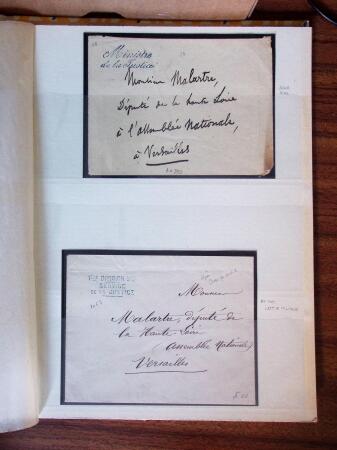 Ministre
de la Justice
Monsieur Malartre,
Député de la haute Loire
à l'assemblée Nationale,
à Versailles
SERVICE
DE LA JUSTICE
Monsieur
Malartre, député de
la Haute Loire
(assemblée Nationale)
Versailles